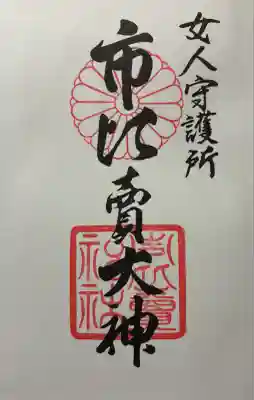 女人守護所
市比賣大神